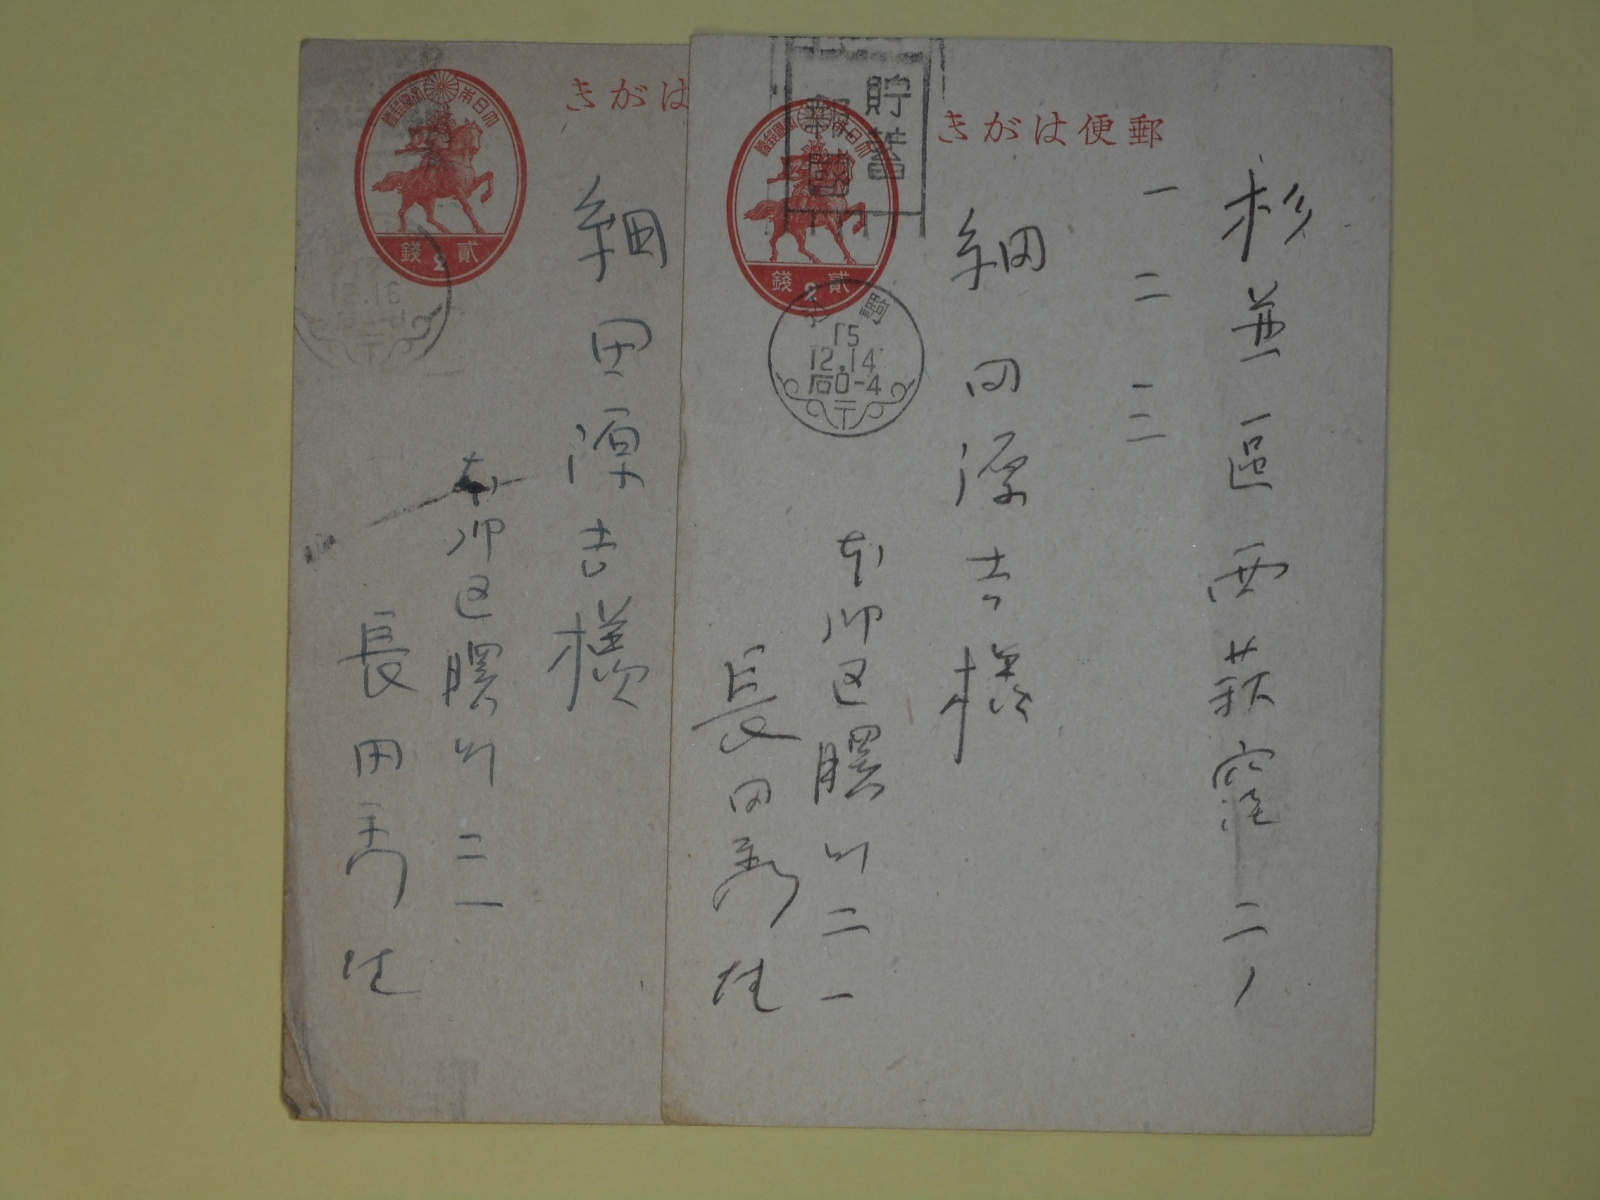 郵便はがき
杉並區西荻窪二ノ
一二三
細田源吉様
本郷区曙町二一
長田秀雄
大日本帝國郵便
貳錢
貯蓄
報國
15
12.14
后0-4
はがき
細田源吉様
本郷区曙町二一
長田秀雄
大日本帝國郵便
貳錢